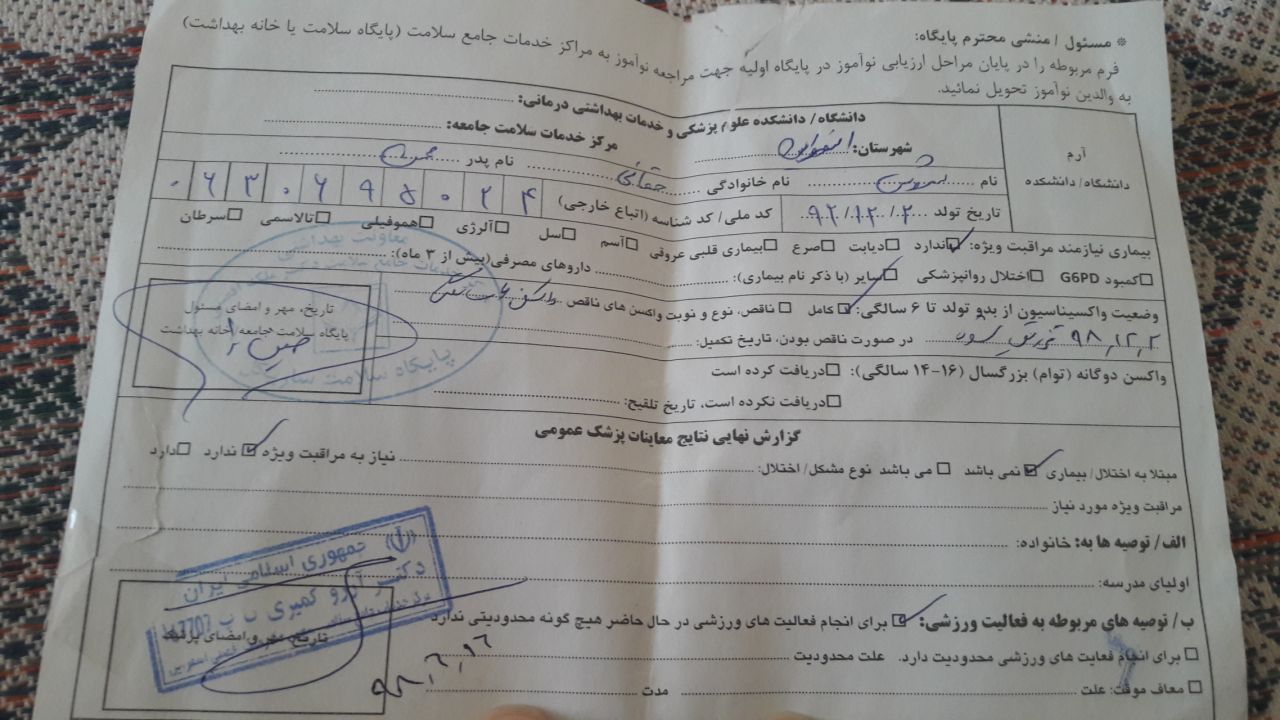 * مسئول / منشی محترم پایگاه:
فرم مربوطه را در پایان مراحل ارزیابی نوآموز در پایگاه اولیه جهت مراجعه نوآموز به مراکز خدمات جامع سلامت (پایگاه سلامت یا خانه بهداشت)
به والدین نوآموز تحویل نمائید.
آرم
دانشگاه/ دانشکده
دانشگاه/ دانشکده علوم پزشکی و خدمات بهداشتی درمانی:
شهرستان: اسفراین مرکز خدمات سلامت جامعه:
نام نام خانوادگی نام پدر
تاریخ تولد ۹۲/۱۲/۲ کد ملی/ کد شناسه (اتباع خارجی) ۰۶۳۰۶۹۵۰۲۴
بیماری نیازمند مراقبت ویژه: ندارد دیابت صرع بیماری قلبی عروقی آسم سل آلرژی هموفیلی تالاسمی سرطان
کمبود G6PD اختلال روانپزشکی سایر (با ذکر نام بیماری): داروهای مصرفی(بیش از ۳ ماه):
وضعیت واکسیناسیون از بدو تولد تا ۶ سالگی: کامل ناقص، نوع و نوبت واکسن های ناقص
۹۸,۱۲,۲ در صورت ناقص بودن، تاریخ تکمیل:
واکسن دوگانه (توام) بزرگسال (۱۶-۱۴ سالگی): دریافت کرده است
دریافت نکرده است، تاریخ تلقیح:
تاریخ، مهر و امضای مسئول
پایگاه سلامت جامعه /خانه بهداشت
معاونت بهداشتی
پایگاه سلامت
گزارش نهایی نتایج معاینات پزشک عمومی
مبتلا به اختلال/ بیماری نمی باشد می باشد نوع مشکل/ اختلال: نیاز به مراقبت ویژه ندارد دارد
مراقبت ویژه مورد نیاز
الف/ توصیه ها به: خانواده:
اولیای مدرسه:
ب/ توصیه های مربوطه به فعالیت ورزشی: برای انجام فعالیت های ورزشی در حال حاضر هیچ گونه محدودیتی ندارد
برای انجام فعایت های ورزشی محدودیت دارد. علت محدودیت
معاف موقت: علت مدت
جمهوری اسلامی ایران
دکتر آرزو کمیری
تاریخ، مهر و امضای پزشک
۹۸,۶,۱۶